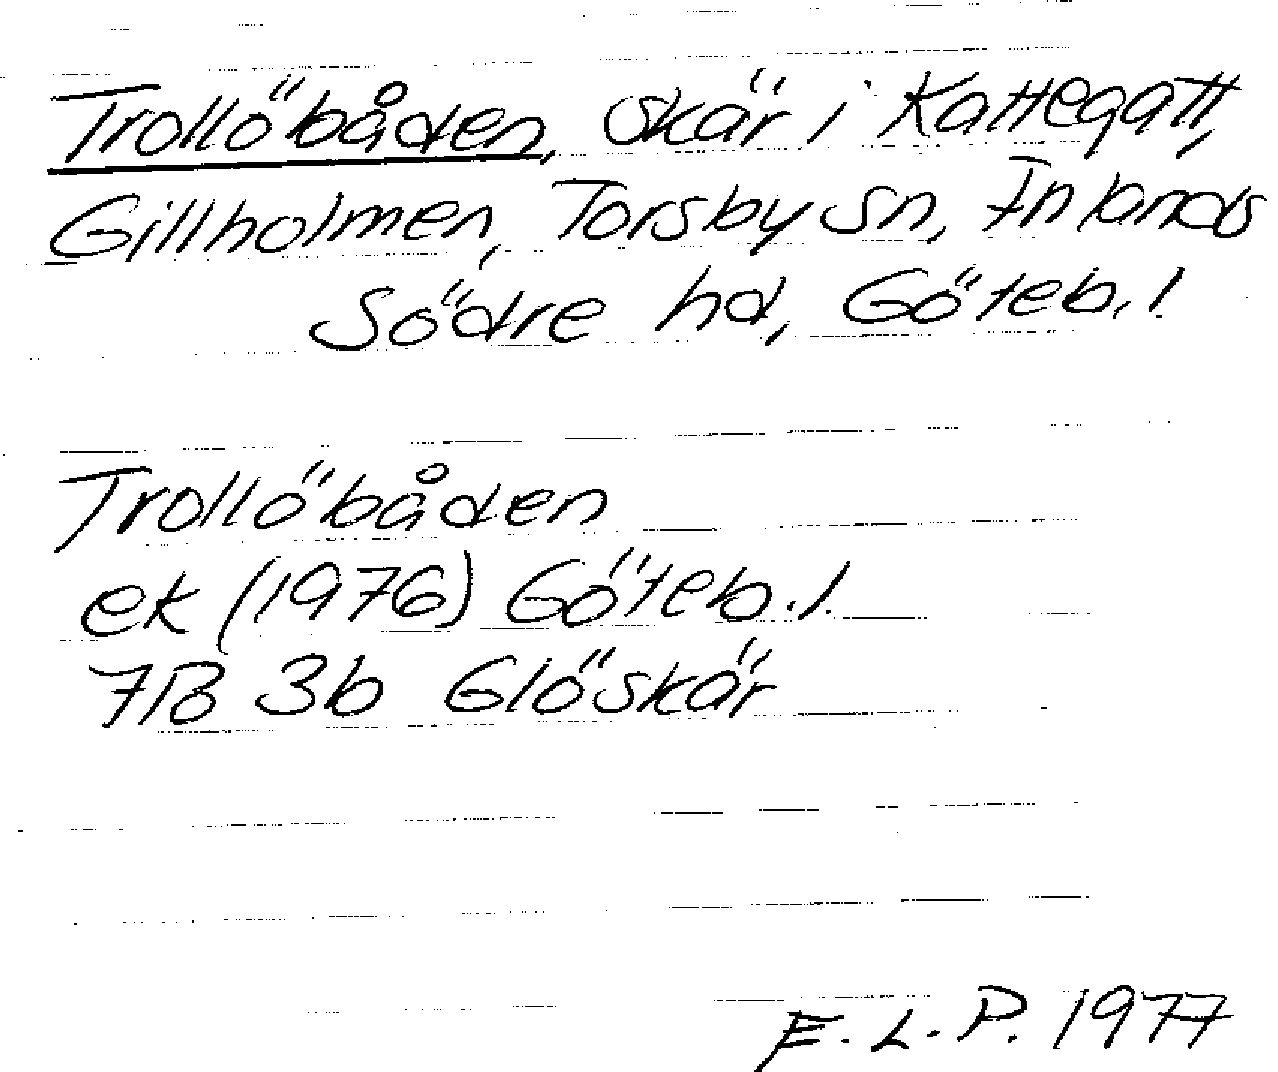 Trollöbåden, skär i Kattegatt,
Gillholmen, Torsby sn, Inlands
Södre hd, Göteb. l
Trollöbåden
ek (1976) Göteb. l.
7B 3b Glöskär
E. L. P. 1977